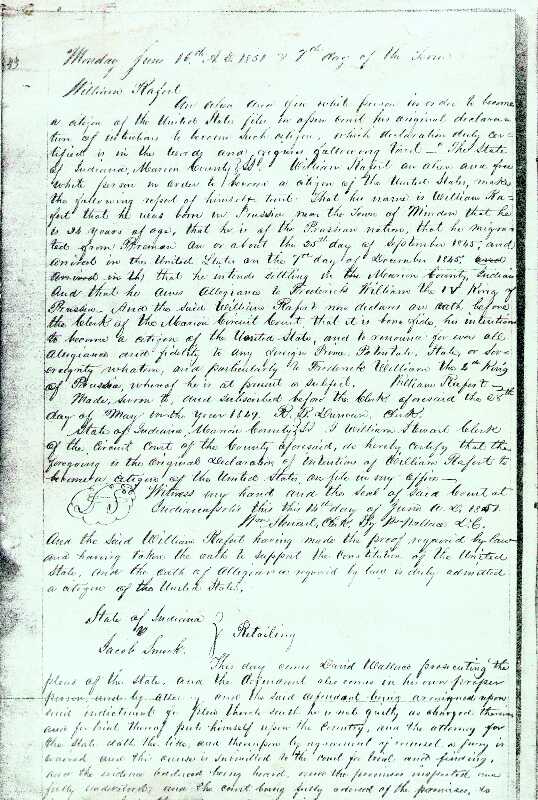 Monday June 16th A.D. 1851 & 7th day of the Term
William Rafert
An alien and free white person in order to become
a citizen of the United States files in open court his original declara-
tion of intention to become such citizen, which declaration duly cer-
tified is in the words and figures following To wit - The State
of Indiana, Marion County Ss William Rafert an alien and free
white person in order to become a citizen of the United States, makes
the following report of himself to wit That his name is William Ra-
fert that he was born in Prussia near the Town of Minden that he
is 24 years of age, that he is of the Prussian nation, that he migra-
ted from Bremen on or about the 25th day of September 1845, and
arrived in the United States on the 7th day of December 1845, and
arrived in th that he intends settling in the Marion County, Indiana
And that he owes Allegiance to Frederick William the IV King of
Prussia. And the said William Rafert now declares on oath before
the Clerk of the Marion Circuit Court that it is bona fide, his intention
to become a citizen of the United States, and to renounce forever all
Allegiance and fidelity to any foreign Prince, Potentate, State, or Sov-
ereignty whatever, and particularly to Frederick William the King
of Prussia, whereof he is at present a subject. William Rafert
Made, sworn to, and subscribed before the Clerk aforesaid the 28th
day of May in the year 1849. R. B. Duncan, Clerk
State of Indiana, Marion County Ss I William Stewart Clerk
of the Circuit Court of the County aforesaid, do hereby certify that the
foregoing is the original Declaration of Intention of William Rafert to
become a citizen of the United States, on file in my Office -
Witness my hand and the seal of said Court at
Indianapolis this the 14th day of June A.D. 1851
Wm Stewart, Clk. By Wm Wallace D.C.
And the said William Rafert having made the proof required by law
and having taken the oath to support the Constitution of the United
States, and the oath of Allegiance required by law is duly admitted
a citizen of the United States.
State of Indiana
vs
Jacob Smock
Retailing
This day comes David Wallace prosecuting the
pleas of the State, and the defendant also comes in his own proper
person, and by attorney and the said defendant being arraigned upon
said indictment for plea thereto saith he is not guilty as charged therein
and for trial thereof puts himself upon the Country, and the attorney for
the State doth the like, and thereupon by agreement of counsel a jury is
waived and this cause is submitted to the court for trial and finding,
and the evidence being heard, and the premises inspected and
fully understood, and the court being fully advised of the premises, do